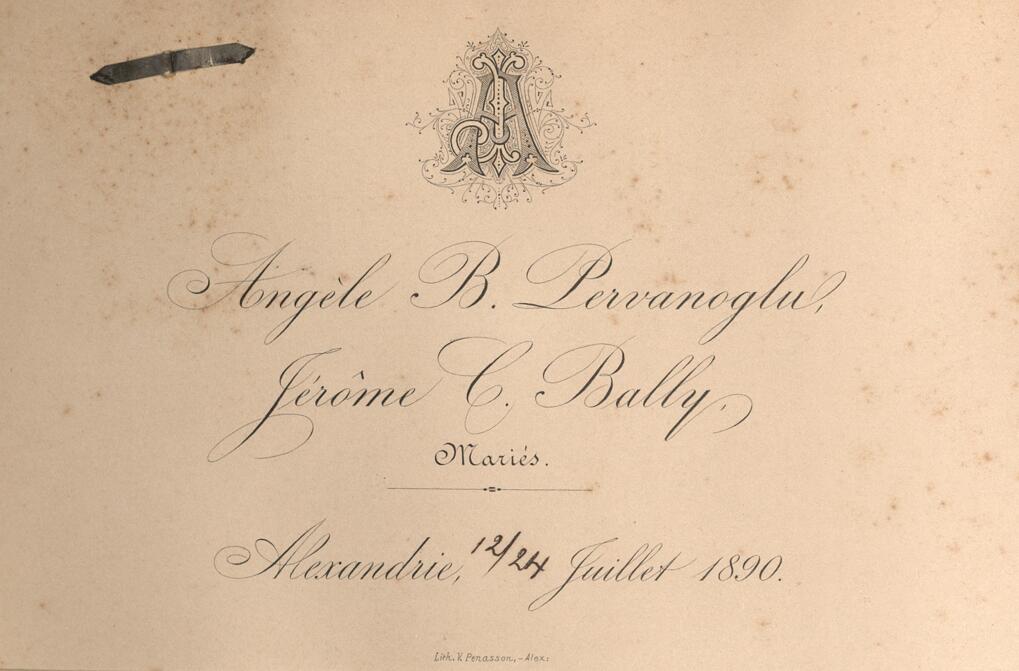 Angèle B. Pervanoglu,
Jérôme C. Bally,
Mariés.
Alexandrie, 12/24 Juillet 1890.
Lith. V. Penasson, - Alex: